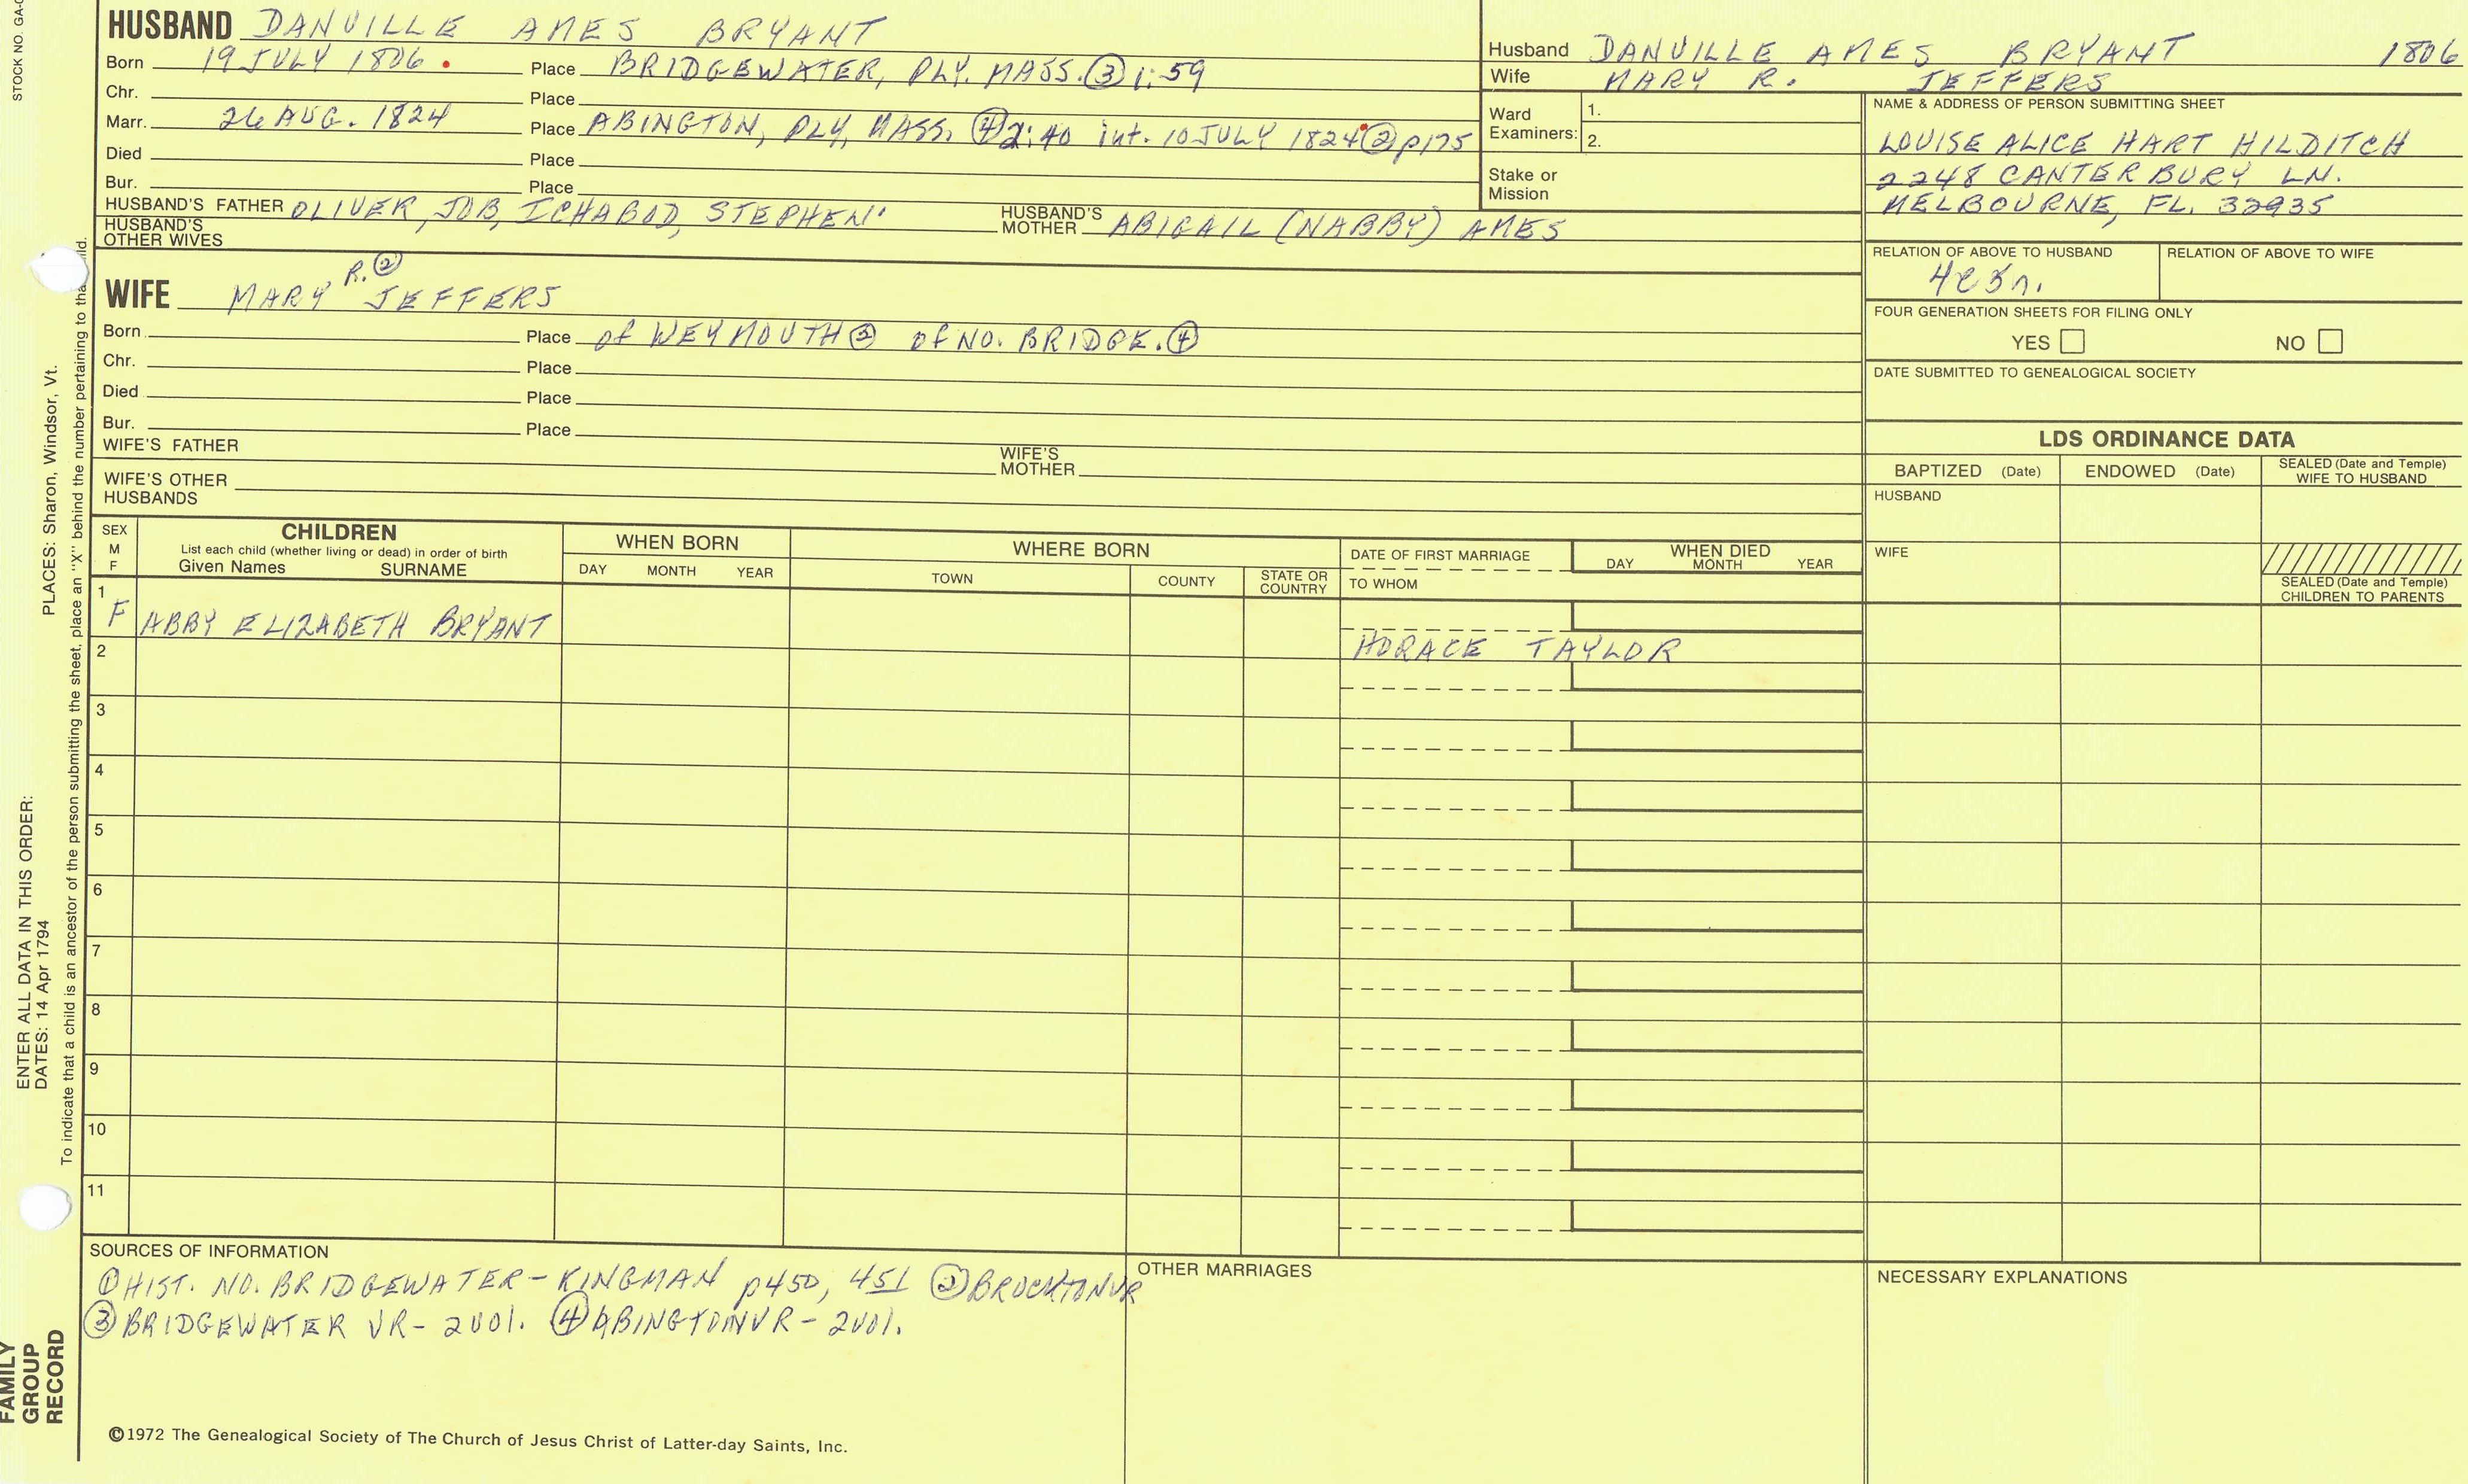 STOCK NO. GA-
HUSBAND DANVILLE AMES BRYANT
Born 19 JULY 1806 . Place BRIDGEWATER, PLY. MASS. ③ 1:59
Chr. Place
Marr. 26 AUG. 1824 Place ABINGTON, PLY, MASS. ④ 2:40 int. 10 JULY 1824 ② p175
Died Place
Bur. Place
HUSBAND'S FATHER OLIVER, JOB, ICHABOD, STEPHEN' HUSBAND'S MOTHER ABIGAIL (NABBY) AMES
HUSBAND'S OTHER WIVES
WIFE MARY R. ② JEFFERS
Born Place of WEYMOUTH ② of NO. BRIDGE. ④
Chr. Place
Died Place
Bur. Place
WIFE'S FATHER WIFE'S MOTHER
WIFE'S OTHER HUSBANDS
Husband DANVILLE AMES BRYANT 1806
Wife MARY R. JEFFERS
Ward Examiners: 1.
2.
Stake or Mission
NAME & ADDRESS OF PERSON SUBMITTING SHEET
LOUISE ALICE HART HILDITCH
2248 CANTERBURY LN.
MELBOURNE, FL. 32935
RELATION OF ABOVE TO HUSBAND RELATION OF ABOVE TO WIFE
FOUR GENERATION SHEETS FOR FILING ONLY
YES NO
DATE SUBMITTED TO GENEALOGICAL SOCIETY
LDS ORDINANCE DATA
BAPTIZED (Date) ENDOWED (Date) SEALED (Date and Temple) WIFE TO HUSBAND
HUSBAND
WIFE
SEALED (Date and Temple) CHILDREN TO PARENTS
SEX M F
CHILDREN
List each child (whether living or dead) in order of birth
Given Names SURNAME
WHEN BORN
DAY MONTH YEAR
WHERE BORN
TOWN COUNTY STATE OR COUNTRY
DATE OF FIRST MARRIAGE
TO WHOM
WHEN DIED
DAY MONTH YEAR
1 F ABBY ELIZABETH BRYANT
HORACE TAYLOR
2
3
4
5
6
7
8
9
10
11
SOURCES OF INFORMATION
① HIST. NO. BRIDGEWATER - KINGMAN p450, 451 ② BROCKTON VR
③ BRIDGEWATER VR - 2 VOL. ④ ABINGTON VR - 2 VOL.
OTHER MARRIAGES
NECESSARY EXPLANATIONS
©1972 The Genealogical Society of The Church of Jesus Christ of Latter-day Saints, Inc.
FAMILY
GROUP
RECORD
ENTER ALL DATA IN THIS ORDER:
DATES: 14 Apr 1794 PLACES: Sharon, Windsor, Vt.
To indicate that a child is an ancestor of the person submitting the sheet, place an "X" behind the number pertaining to that child.